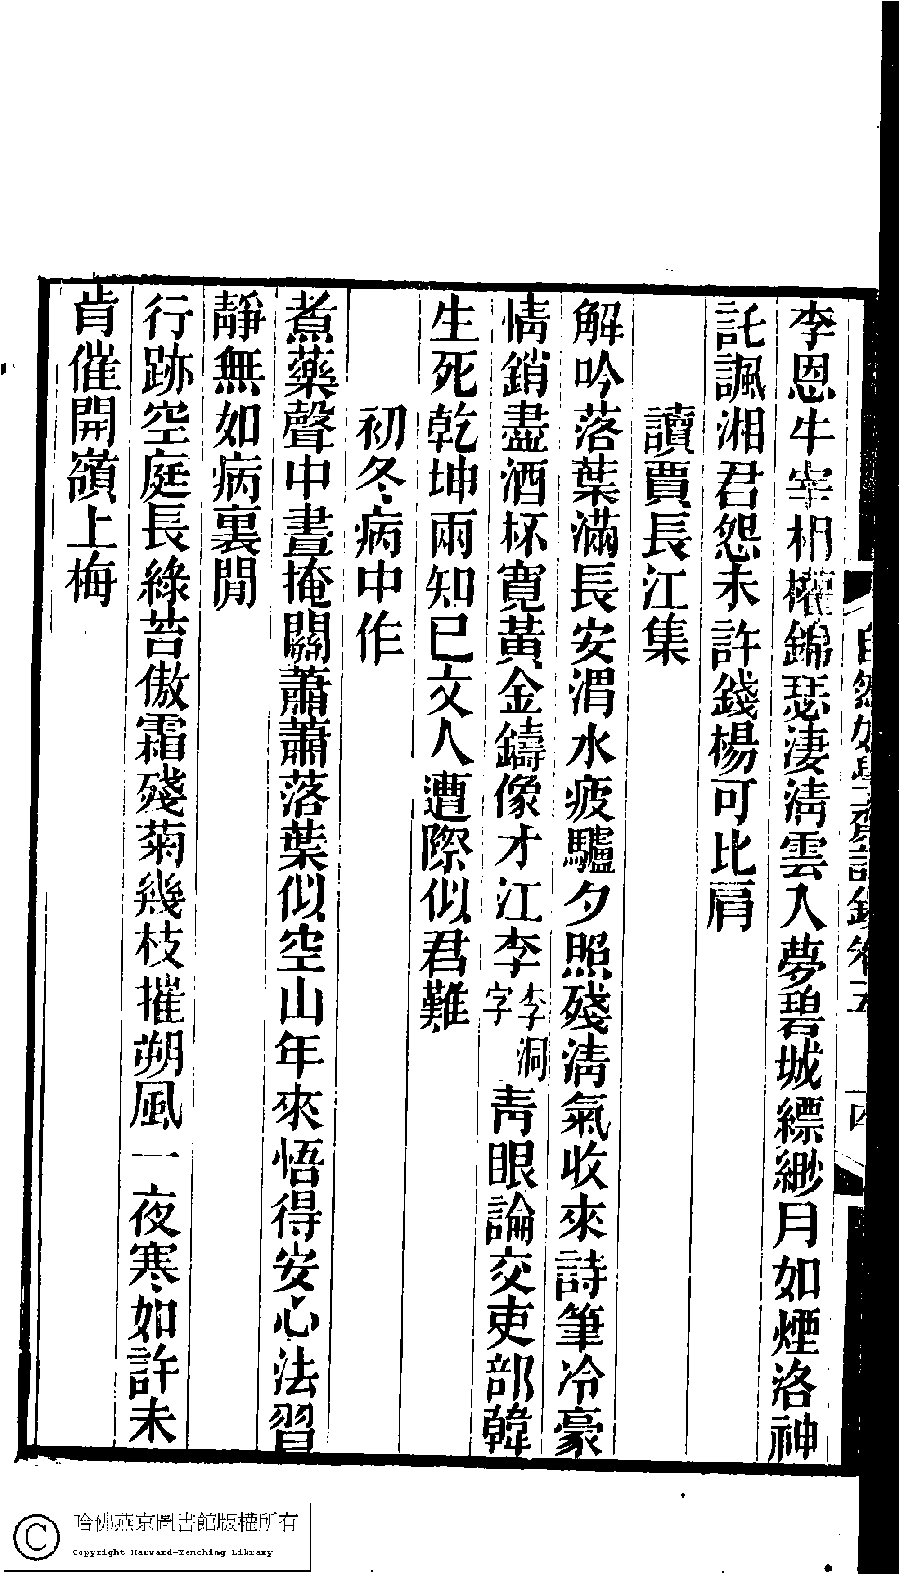 李恩牛宰相權錦瑟淒淸雲入夢碧城縹緲月如煙洛神
託諷湘君怨未許錢楊可比肩
讀賈長江集
解吟落葉滿長安渭水疲驢夕照殘淸氣收來詩筆冷豪
情銷盡酒杯寬黃金鑄像才江李李洞字靑眼論交吏部韓
生死乾坤兩知己文人遭際似君難
初冬病中作
煮藥聲中晝掩關蕭蕭落葉似空山年來悟得安心法習
靜無如病裏閒
行跡空庭長綠苔傲霜殘菊幾枝摧朔風一夜寒如許未
肯催開嶺上梅
哈佛燕京圖書館版權所有
Copyright Harvard-Yenching Library